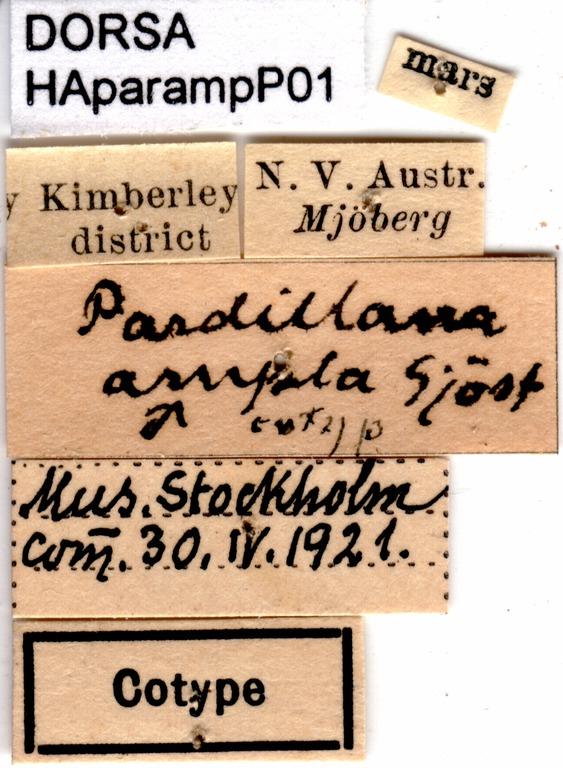 DORSA
HAparampP01
mars
y Kimberley
district
N. V. Austr.
Mjöberg
Pardillana
ampla Sjöst
Mus. Stockholm
com̄. 30. IV. 1921.
Cotype